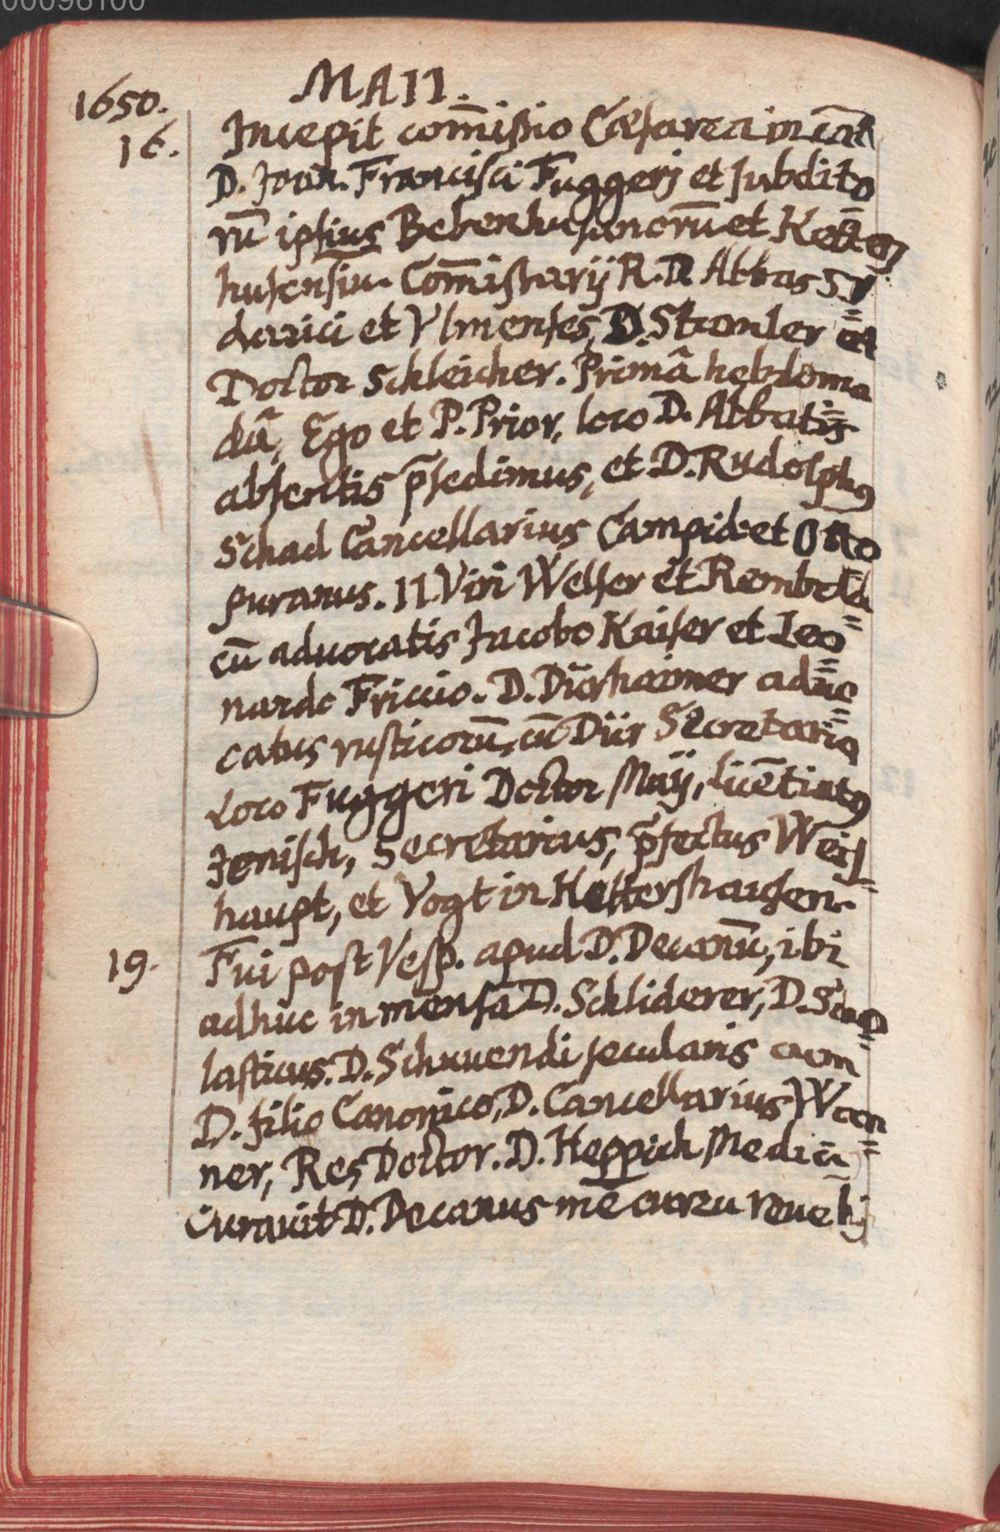 00096100
MAII.
1650.
16. Incepit com̄ißio Cæsarea in cā̄
D. Joan. Francisci Fuggerj et subdito
rū ipsius Bebenhusanorū et Ketten
husensiū. Com̄ißarij R. D. Abbas Sy
darici et Ylmenses, D. Stromler et
Doctor Schleicher. Primâ hebdoma
dâ, Ego et P. Prior, loco D. Abbatis
absentis p̄sedimus, et D. Rudolphꝰ
Schad Cancellarius Campid. et Otto
puranus. II Viri Welser et Rembold
cū aduocatis Jacobo Kaiser et Leo
nardo Friccio. D. Dūrheimer aduo
catus rusticorū, cū Dür Secretario
Loco Fuggeri Doctor Maÿ, licētiatꝰ
Jenisch, Secretarius, p̄fectus Weis
haupt, et Vogt in Kettershausen.
19. Fui post Vesp. apud D. Decanū, ibi
adhuc in mensa D. Schliderer, D. Scho
lasticus. D. Schwendi secularis cum
D. filio Canonico, D. Cancellarius Wan
ner, Res Doctor. D. Heppich Medicū
Curauit D. Decanus mē curru reuehj